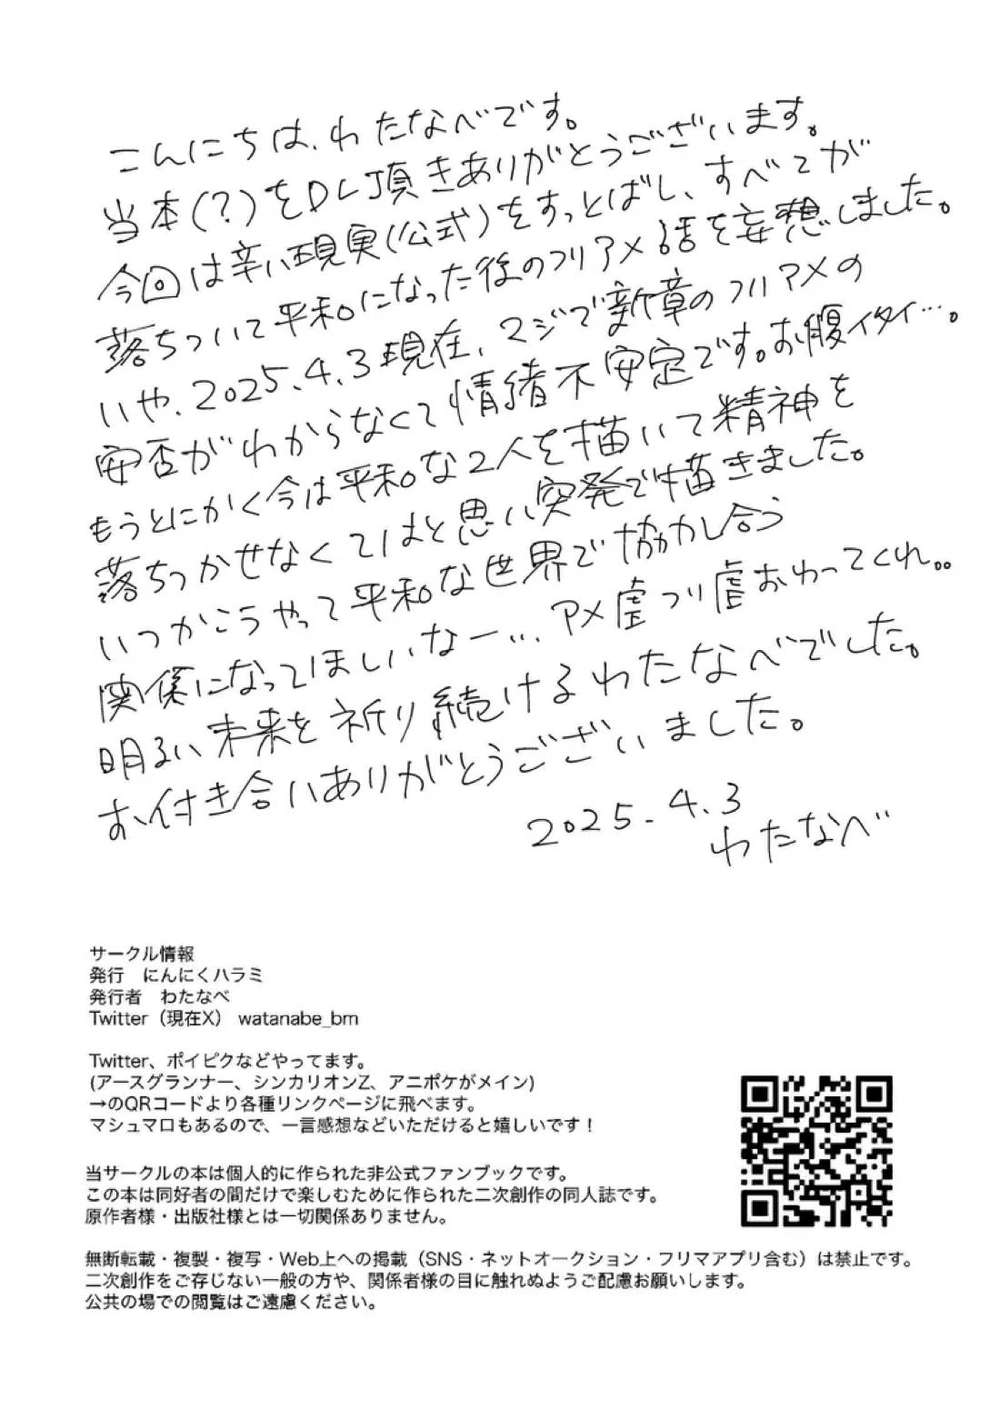 こんにちは、わたなべです。
当本(?)をDL頂きありがとうございます。
今回は辛い現実(公式)をすっとばし、すべてが
落ちついて平和になった後のフリアメ話を妄想しました。
いや、2025.4.3現在、マジで新章のフリアメの
安否がわからなくて情緒不安定です。お腹イタイ…。
もうとにかく今は平和な2人を描いて精神を
落ちつかせなくてはと思い突発で描きました。
いつかこうやって平和な世界で協力し合う
関係になってほしいなー…。アメ虐フリ虐おわってくれ。。
明るい未来を祈り続けるわたなべでした。
お付き合いありがとうございました。
2025.4.3
わたなべ
サークル情報
発行　にんにくハラミ
発行者　わたなべ
Twitter（現在X）　watanabe_bm
Twitter、ポイピクなどやってます。
(アースグランナー、シンカリオンZ、アニポケがメイン)
→のQRコードより各種リンクページに飛べます。
マシュマロもあるので、一言感想などいただけると嬉しいです！
当サークルの本は個人的に作られた非公式ファンブックです。
この本は同好者の間だけで楽しむために作られた二次創作の同人誌です。
原作者様・出版社様とは一切関係ありません。
無断転載・複製・複写・Web上への掲載（SNS・ネットオークション・フリマアプリ含む）は禁止です。
二次創作をご存じない一般の方や、関係者様の目に触れぬようご配慮お願いします。
公共の場での閲覧はご遠慮ください。